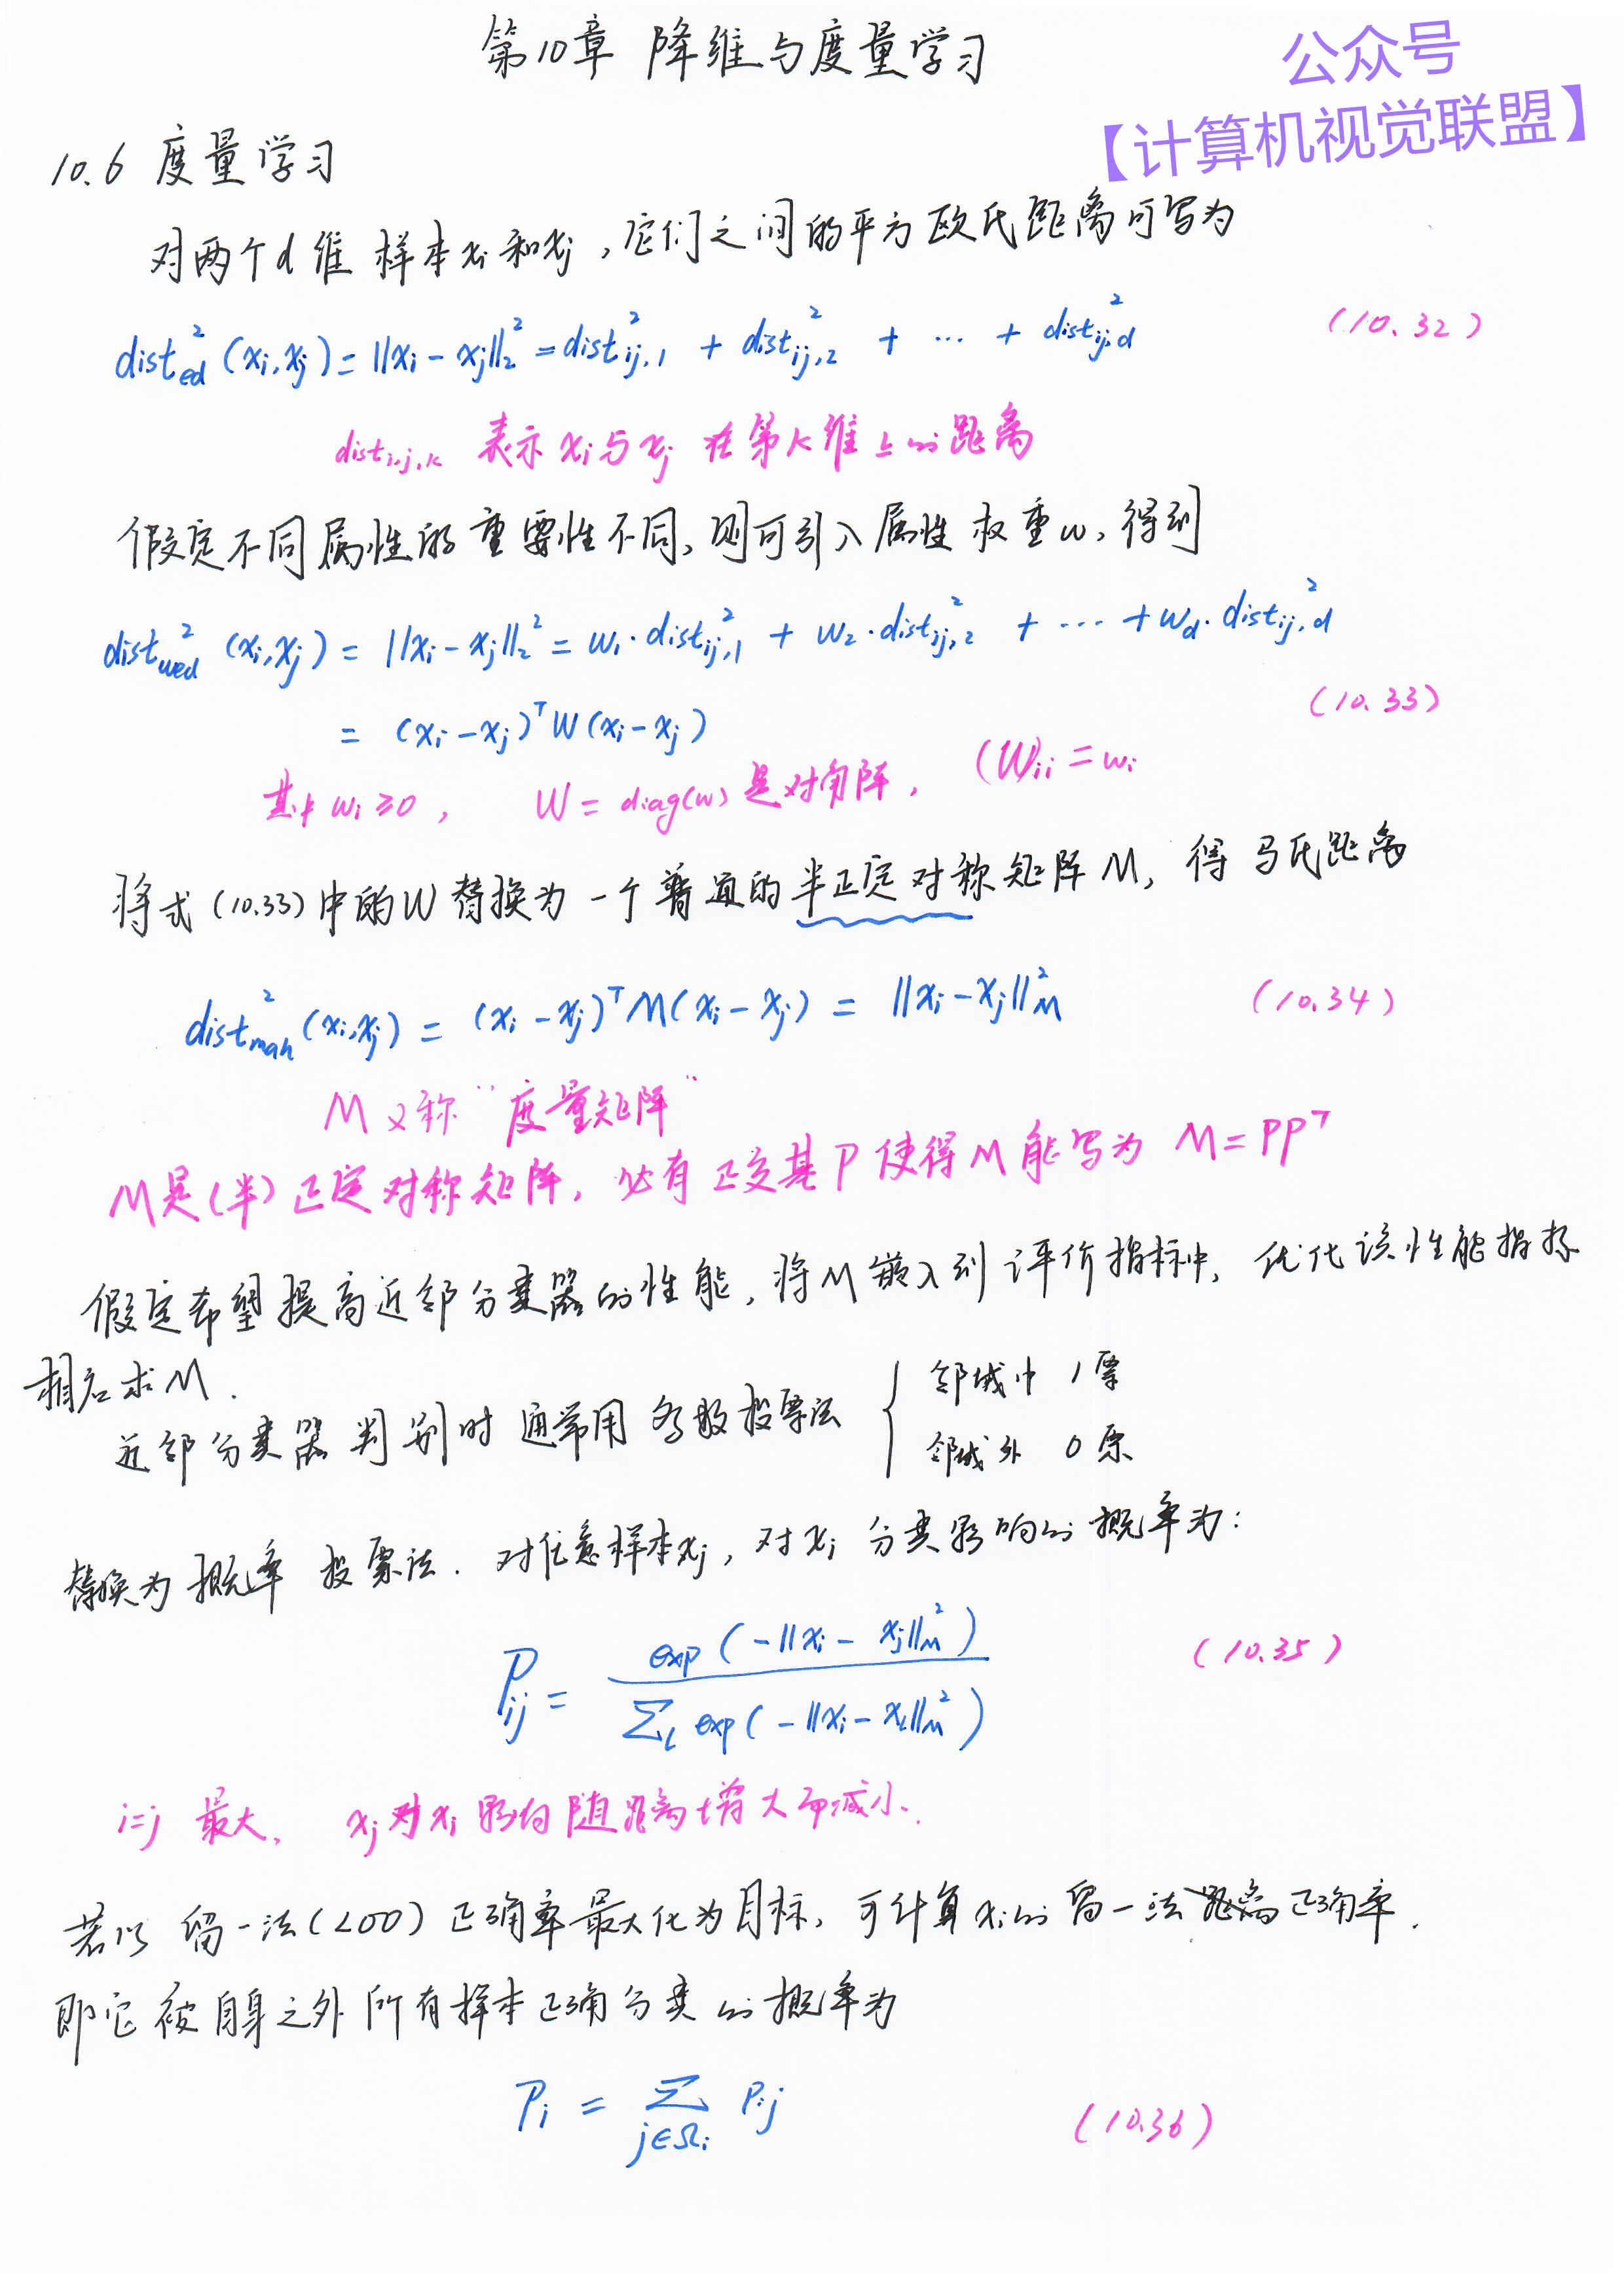 第10章 降维与度量学习
公众号
【计算机视觉联盟】
10.6 度量学习
对两个d维 样本xi和xj，它们之间的平方欧氏距离可写为
dist²ed (xi,xj) = ||xi - xj||₂² = dist²ij,1 + dist²ij,2 + ... + dist²ij,d (10.32)
disti,j,k 表示xi与xj 在第k维上的距离
假定不同属性的重要性不同，则可引入属性权重w，得到
dist²wed (xi,xj) = ||xi - xj||₂² = w1·dist²ij,1 + w2·dist²ij,2 + ... + wd·dist²ij,d
= (xi - xj)ᵀW(xi - xj) (10.33)
其中 wi ≥ 0， W = diag(w) 是对角阵， (W)ii = wi
将式(10.33)中的W替换为一个普通的半正定对称矩阵M，得 马氏距离
dist²mah (xi,xj) = (xi - xj)ᵀM(xi - xj) = ||xi - xj||²M (10.34)
M又称“度量矩阵”
M是(半)正定对称矩阵，必有正交基P使得M能写为 M = PPᵀ
假定希望提高近邻分类器的性能，将M嵌入到评价指标中，优化该性能指标
相应求M.
近邻分类器判别时通常用 多数投票法 { 邻域中 1票
邻域外 0票
替换为概率投票法. 对任意样本xj，对xi 分类影响的概率为：
Pij = exp(-||xi - xj||²M) / ∑l exp(-||xi - xl||²M) (10.35)
i=j 最大， xj对xi影响随距离增大而减小.
若以 留一法(LOO)正确率最大化为目标，可计算xi的留一法距离正确率.
即它被自身之外所有样本正确分类的概率为
Pi = ∑j∈Ωi Pij (10.36)